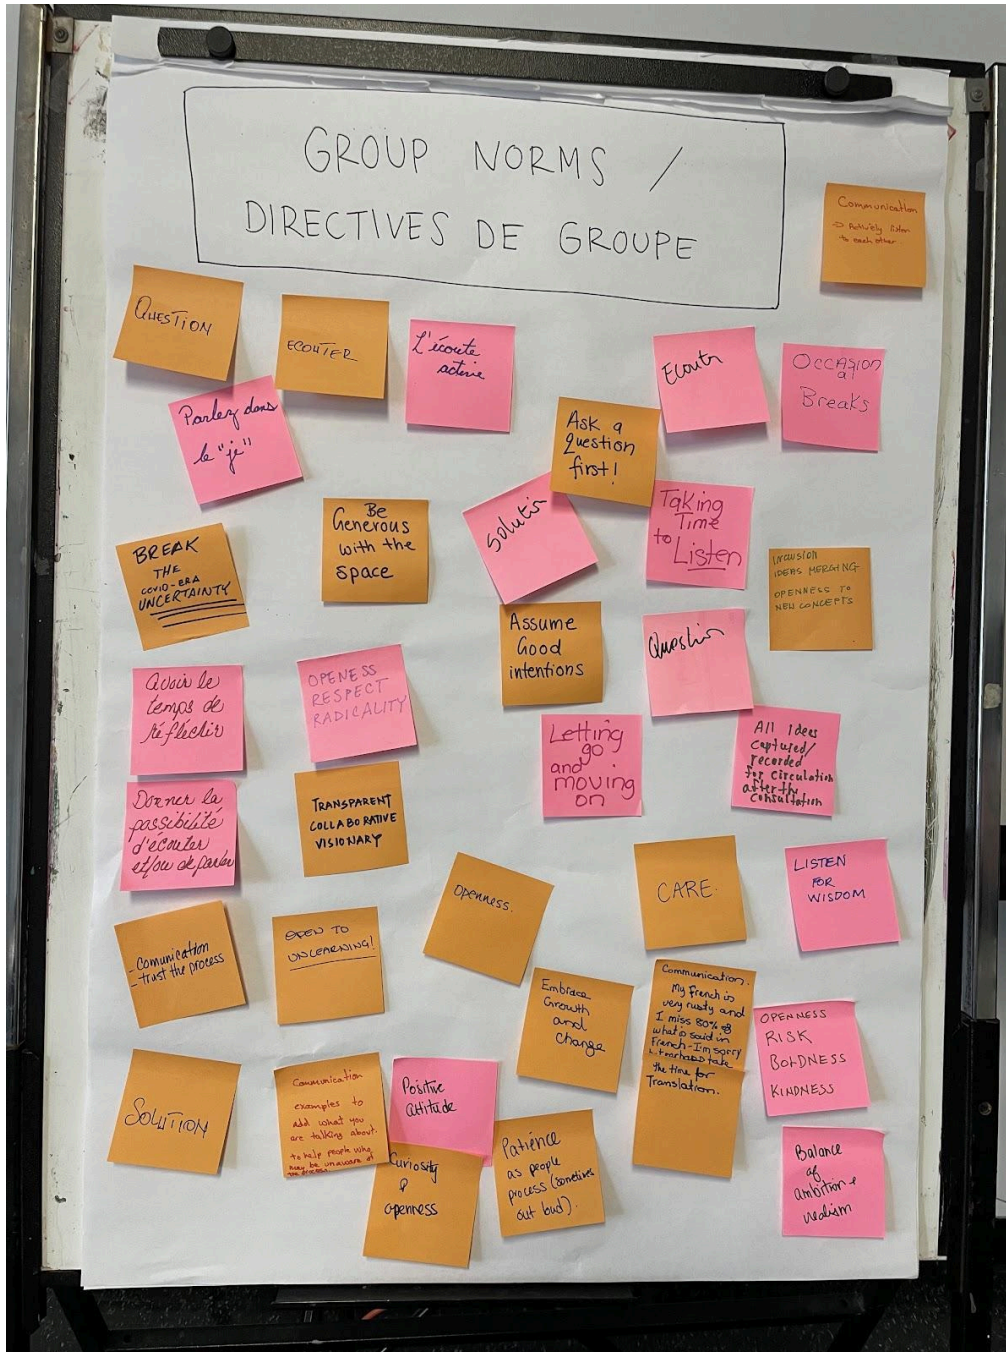 GROUP NORMS /
DIRECTIVES DE GROUPE
Communication
→ Actively listen
to each other
QUESTION
ECOUTER
L'écoute
active
Ecoutr
OCCASION
al
Breaks
Parlez dans
le "je"
Ask a
Question
first!
BREAK
THE
COVID-ERA
UNCERTAINTY
Be
Generous
with the
space
Solution
Taking
Time
to Listen
INCLUSION
IDEAS MERGING
OPENNESS TO
NEW CONCEPTS
Assume
Good
intentions
Question
Avoir le
temps de
réfléchir
OPENESS
RESPECT
RADICALITY
Letting
go
and
moving
on
All Ideas
captured/
recorded
for circulation
after the
consultation
Donner la
possibilité
d'écouter
et/ou de parler
TRANSPARENT
COLLABORATIVE
VISIONARY
Openness.
CARE.
LISTEN
FOR
WISDOM
- Comunication
- trust the process
OPEN TO
UNLEARNING!
Embrace
Growth
and
Change
Communication.
My French is
very rusty and
I miss 80% of
what is said in
French - I'm sorry
take
the time for
Translation.
OPENNESS
RISK
BOLDNESS
KINDNESS
SOLUTION
Communication
examples to
add what you
are talking about.
to help people who
may be unaware of
Positive
attitude
Curiosity
&
openness
Patience
as people
process (sometimes
out loud).
Balance
of
ambition +
realism